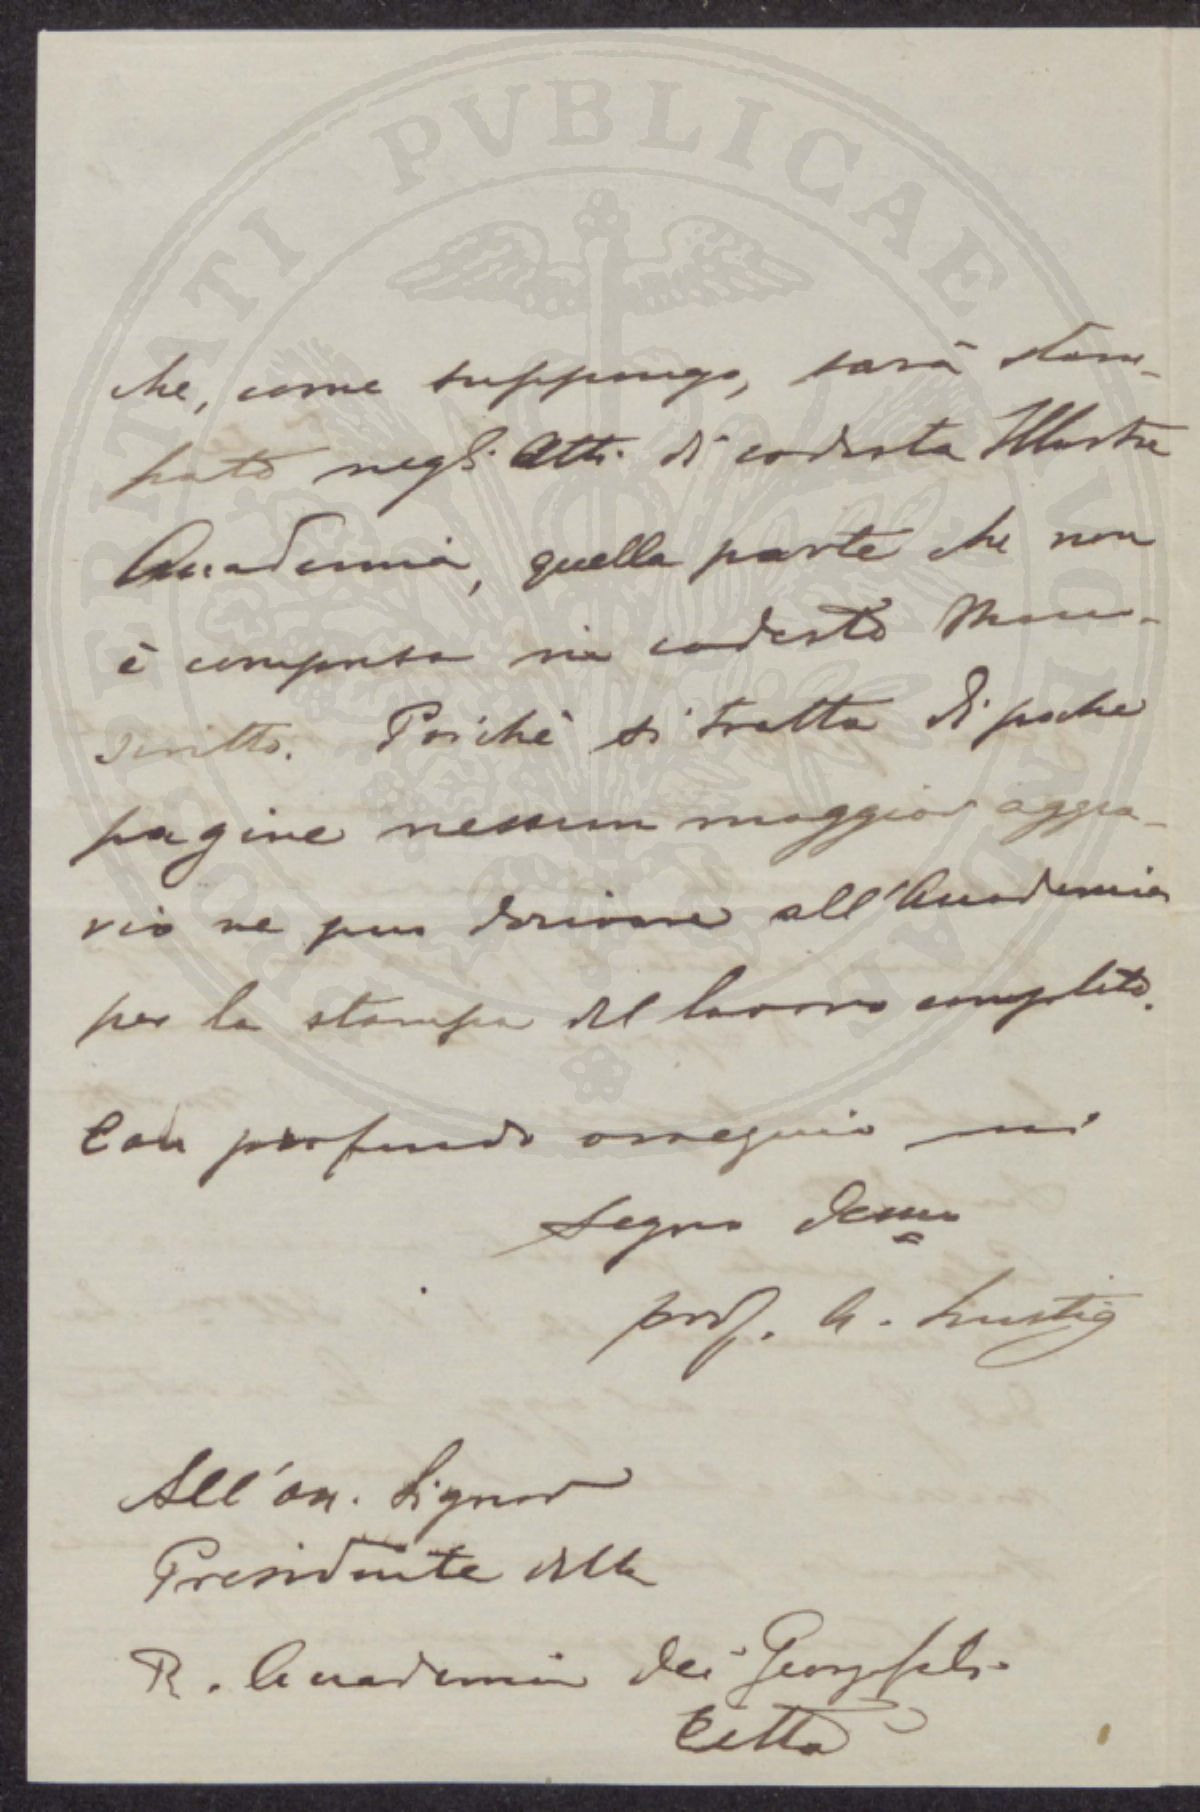 PROSPERITATI PVBLICAE
che, come suppongo, sarà stam-
pato negli Atti di codesta Illustre
Accademia, quella parte che non
è compresa in codesto Manu-
scritto. Poichè si tratta di poche
pagine nessun maggior aggra-
vio ne può derivare all'Accademia
per la stampa del lavoro completo.
Con profondo ossequio mi
segno Devmo
prof. A. Lustig
All'on. Signor
Presidente della
R. Accademia dei Georgofili
Città